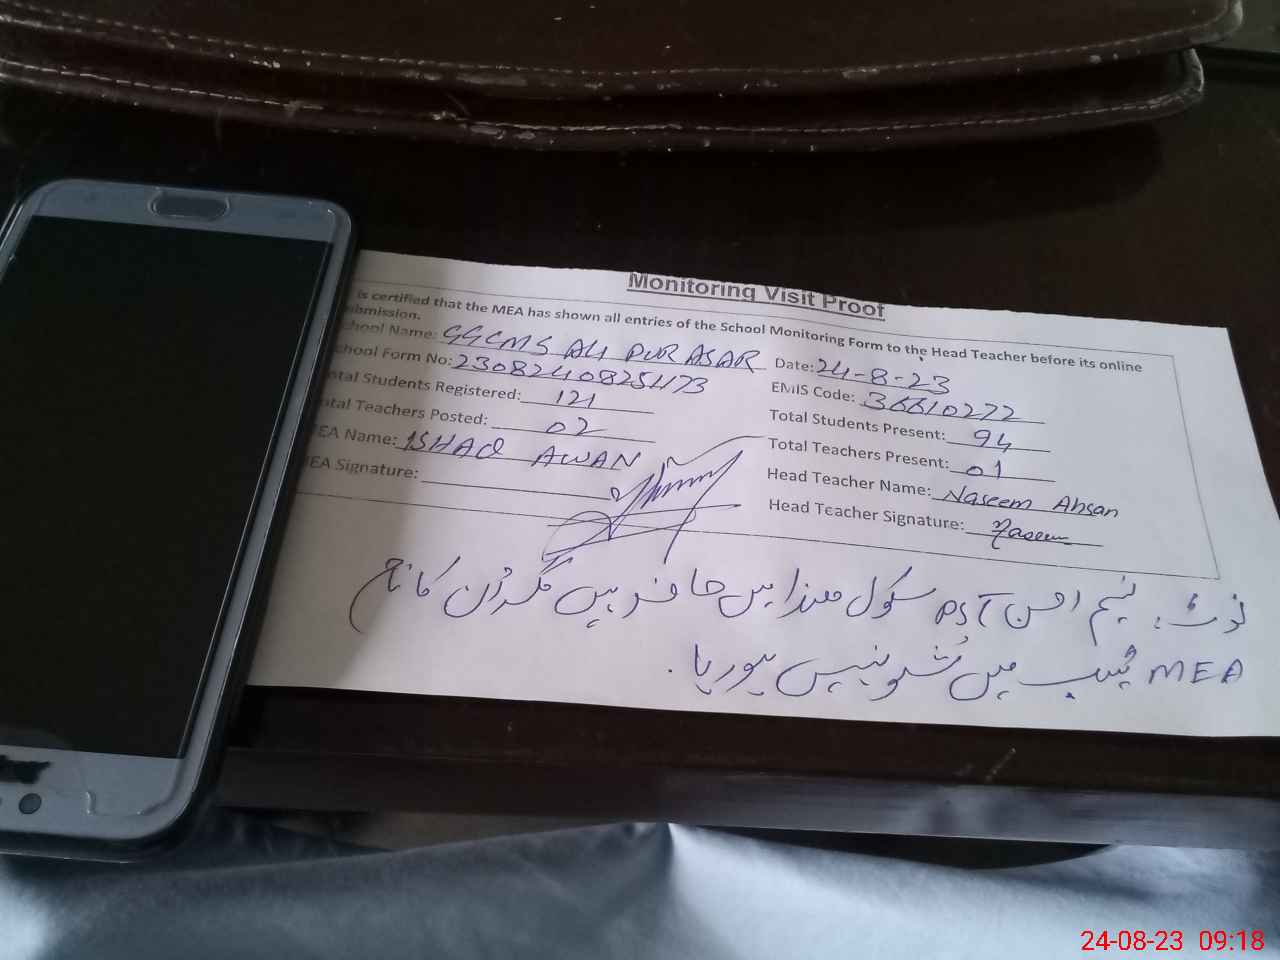 Monitoring Visit Proof
is certified that the MEA has shown all entries of the School Monitoring Form to the Head Teacher before its online
ubmission.
chool Name: GGCMS ALI PUR ASAR Date: 24-8-23
chool Form No: 230824082547 EMIS Code: 36610272
otal Students Registered: 121 Total Students Present: 94
otal Teachers Posted: 02 Total Teachers Present: 01
EA Name: ISHAQ AWAN Head Teacher Name: Naseem Ahsan
EA Signature: Head Teacher Signature: Naseem
نوٹ: نسیم احسن PST سکول ھذا میں حاضر ہیں مگر ان کا
MEA ٹیب میں شو نہیں ہو رہا۔
24-08-23 09:18